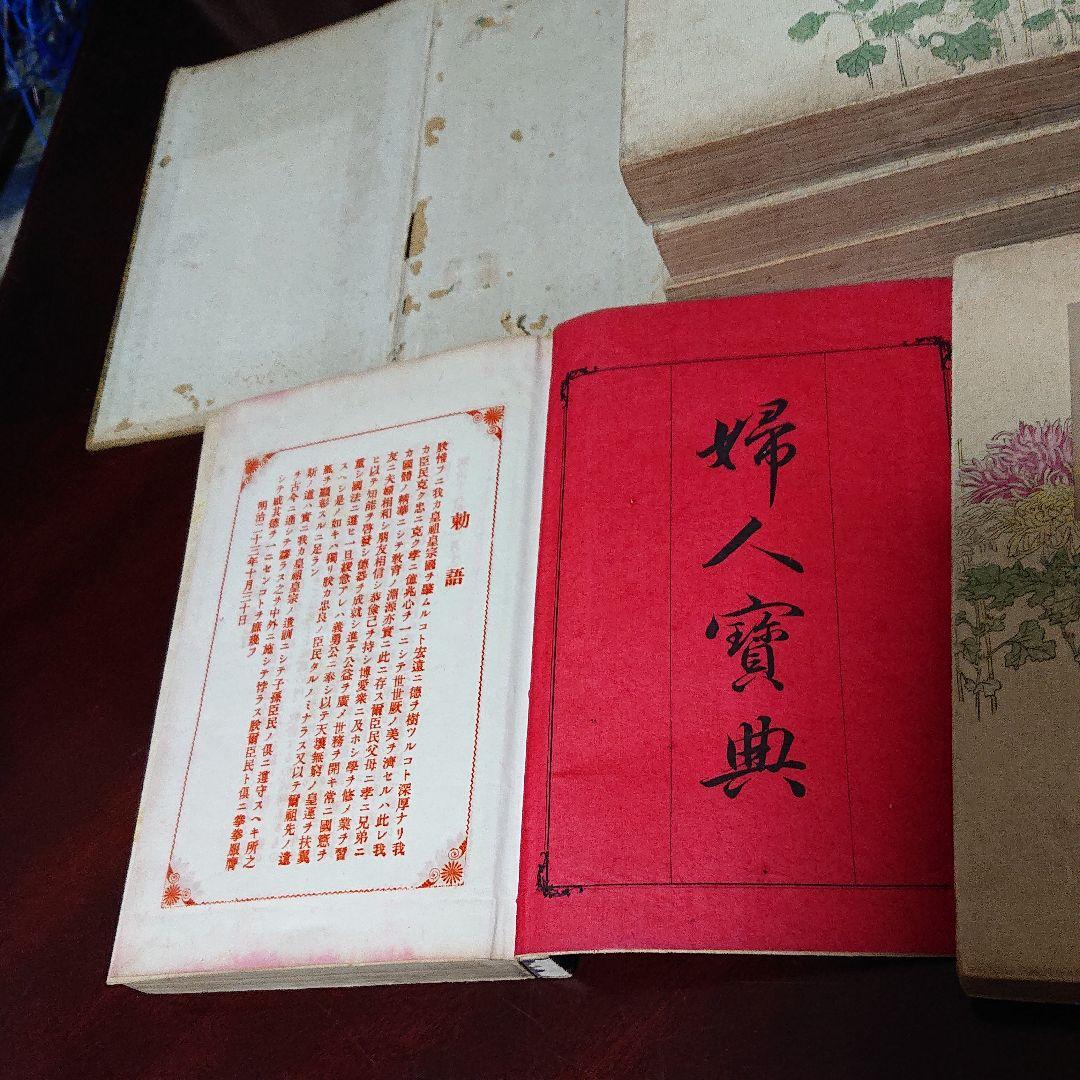 婦人寶典
勅語
朕惟フニ我カ皇祖皇宗國ヲ肇ムルコト宏遠ニ德ヲ樹ツルコト深厚ナリ我
カ臣民克ク忠ニ克ク孝ニ億兆心ヲ一ニシテ世世厥ノ美ヲ濟セルハ此レ我
カ國體ノ精華ニシテ敎育ノ淵源亦實ニ此ニ存ス爾臣民父母ニ孝ニ兄弟ニ
友ニ夫婦相和シ朋友相信シ恭儉己ヲ持シ博愛衆ニ及ホシ學ヲ修メ業ヲ習
ヒ以テ知能ヲ啓發シ德器ヲ成就シ進テ公益ヲ廣メ世務ヲ開キ常ニ國憲ヲ
重シ國法ニ遵ヒ一旦緩急アレハ義勇公ニ奉シ以テ天壤無窮ノ皇運ヲ扶翼
スヘシ是ノ如キハ獨リ朕カ忠良ノ臣民タルノミナラス又以テ爾祖先ノ遺
風ヲ顯彰スルニ足ラン
斯ノ道ハ實ニ我カ皇祖皇宗ノ遺訓ニシテ子孫臣民ノ俱ニ遵守スヘキ所之
ヲ古今ニ通シテ謬ラス之ヲ中外ニ施シテ悖ラス朕爾臣民ト俱ニ拳拳服膺
シテ咸其德ヲ一ニセンコトヲ庶幾フ
明治二十三年十月三十日